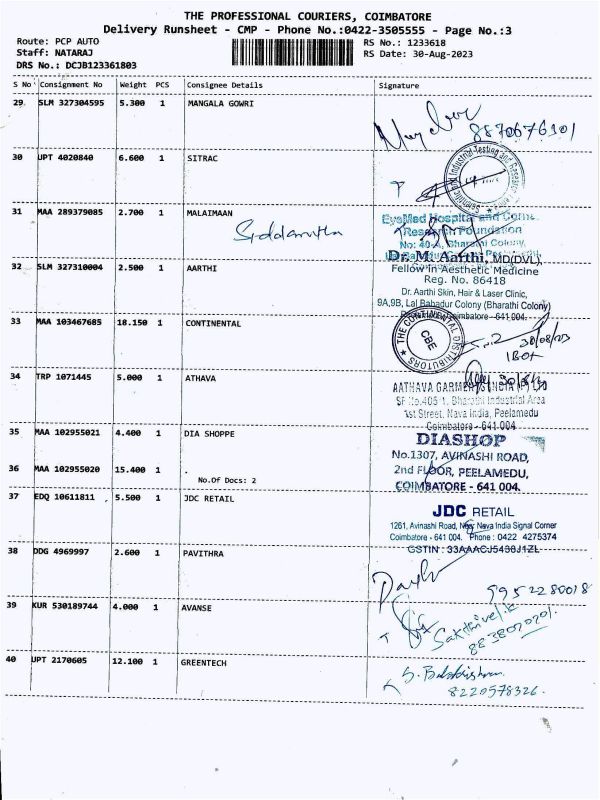 THE PROFESSIONAL COURIERS, COIMBATORE
Delivery Runsheet - CMP - Phone No.:0422-3505555 - Page No.:3
Route: PCP AUTO
Staff: NATARAJ
DRS No.: DCJB123361803
RS No.: 1233618
RS Date: 30-Aug-2023
S No Consignment No Weight PCS Consignee Details Signature
29 SLM 327304595 5.300 1 MANGALA GOWRI
8870676301
30 UPT 4020840 6.600 1 SITRAC
31 MAA 289379085 2.700 1 MALAIMAAN
EyeMed Hospital and
Research Foundation
No: 40-A, Bharathi Colony,
32 SLM 327310004 2.500 1 AARTHI
Dr. M. Aarthi, MD(DVL),
Fellow in Aesthetic Medicine
Reg. No. 86418
Dr. Aarthi Skin, Hair & Laser Clinic,
9A,9B, Lal Bahadur Colony (Bharathi Colony)
Coimbatore - 641 004.
33 MAA 103467685 18.150 1 CONTINENTAL
THE CONTINENTAL DISTRIBUTORS
CBE
30/08/23
1BOX
34 TRP 1071445 5.000 1 ATHAVA
AATHAVA GARMENTS
SF No.405-1, Bharathi Industrial Area
1st Street, Nava India, Peelamedu
Coimbatore - 641 004
35 MAA 102955021 4.400 1 DIA SHOPPE
DIASHOP
No.1307, AVINASHI ROAD,
2nd FLOOR, PEELAMEDU,
COIMBATORE - 641 004.
36 MAA 102955020 15.400 1 .
No.Of Docs: 2
37 EDQ 10611811 5.500 1 JDC RETAIL
JDC RETAIL
1261, Avinashi Road, Near Nava India Signal Corner
Coimbatore - 641 004. Phone : 0422 4275374
GSTIN : 33AAACJ5438J1ZL
38 DDG 4969997 2.600 1 PAVITHRA
9952280018
39 KUR 530189744 4.000 1 AVANSE
Sakthivel.k
8838020201
40 UPT 2170605 12.100 1 GREENTECH
S. Balakrishnan
8220578326.